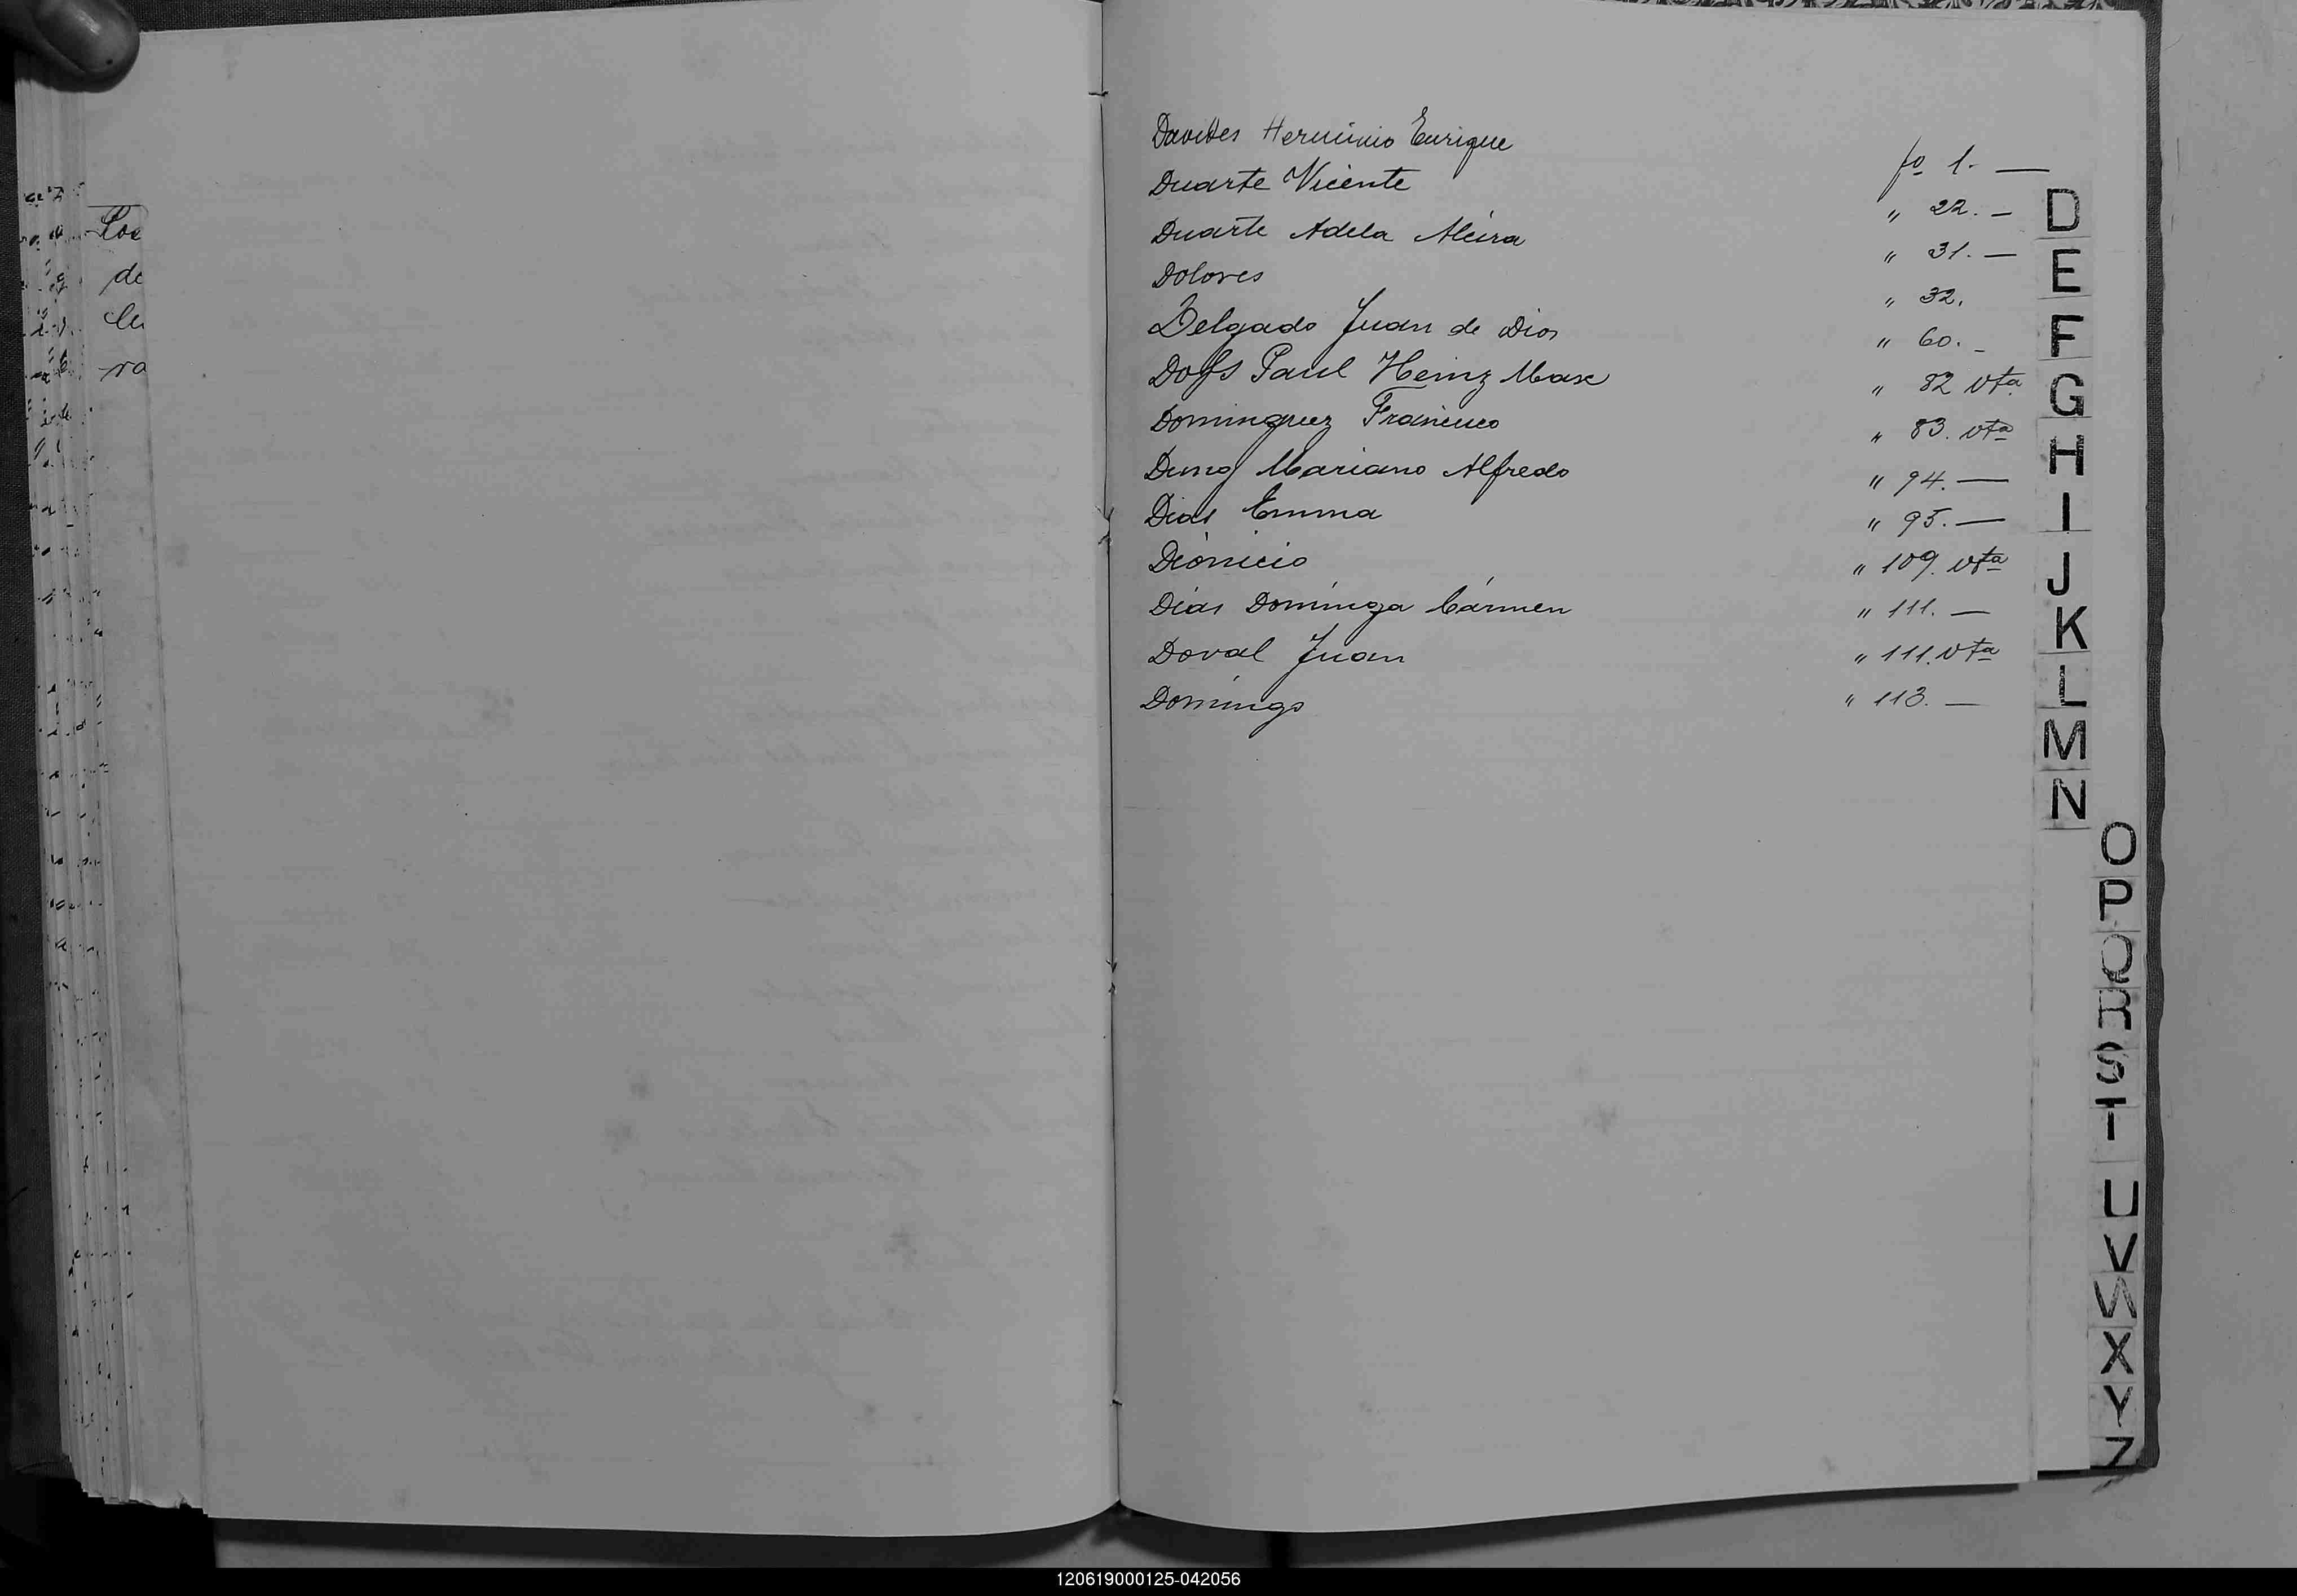 Los
de
ra
Davides Herminio Enrique fo 1. —
Duarte Vicente " 22. —
Duarte Adela Alcira " 31. —
Dolores " 32.
Delgado Juan de Dios " 60. _
Paul Heinz Max " 82 vta
Dominguez Francisco " 83. vta
Mariano Alfredo " 94. —
Dias Emma " 95. —
Dionicio " 109. vta
Dias Dominga Cármen " 111. —
Doval Juan " 111. vta
Domingo " 113. —
D
E
F
G
H
I
J
K
L
M
N
O
P
Q
R
S
T
U
V
W
X
Y
Z
120619000125-042056